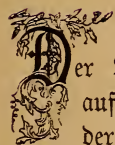 Der
auf
der